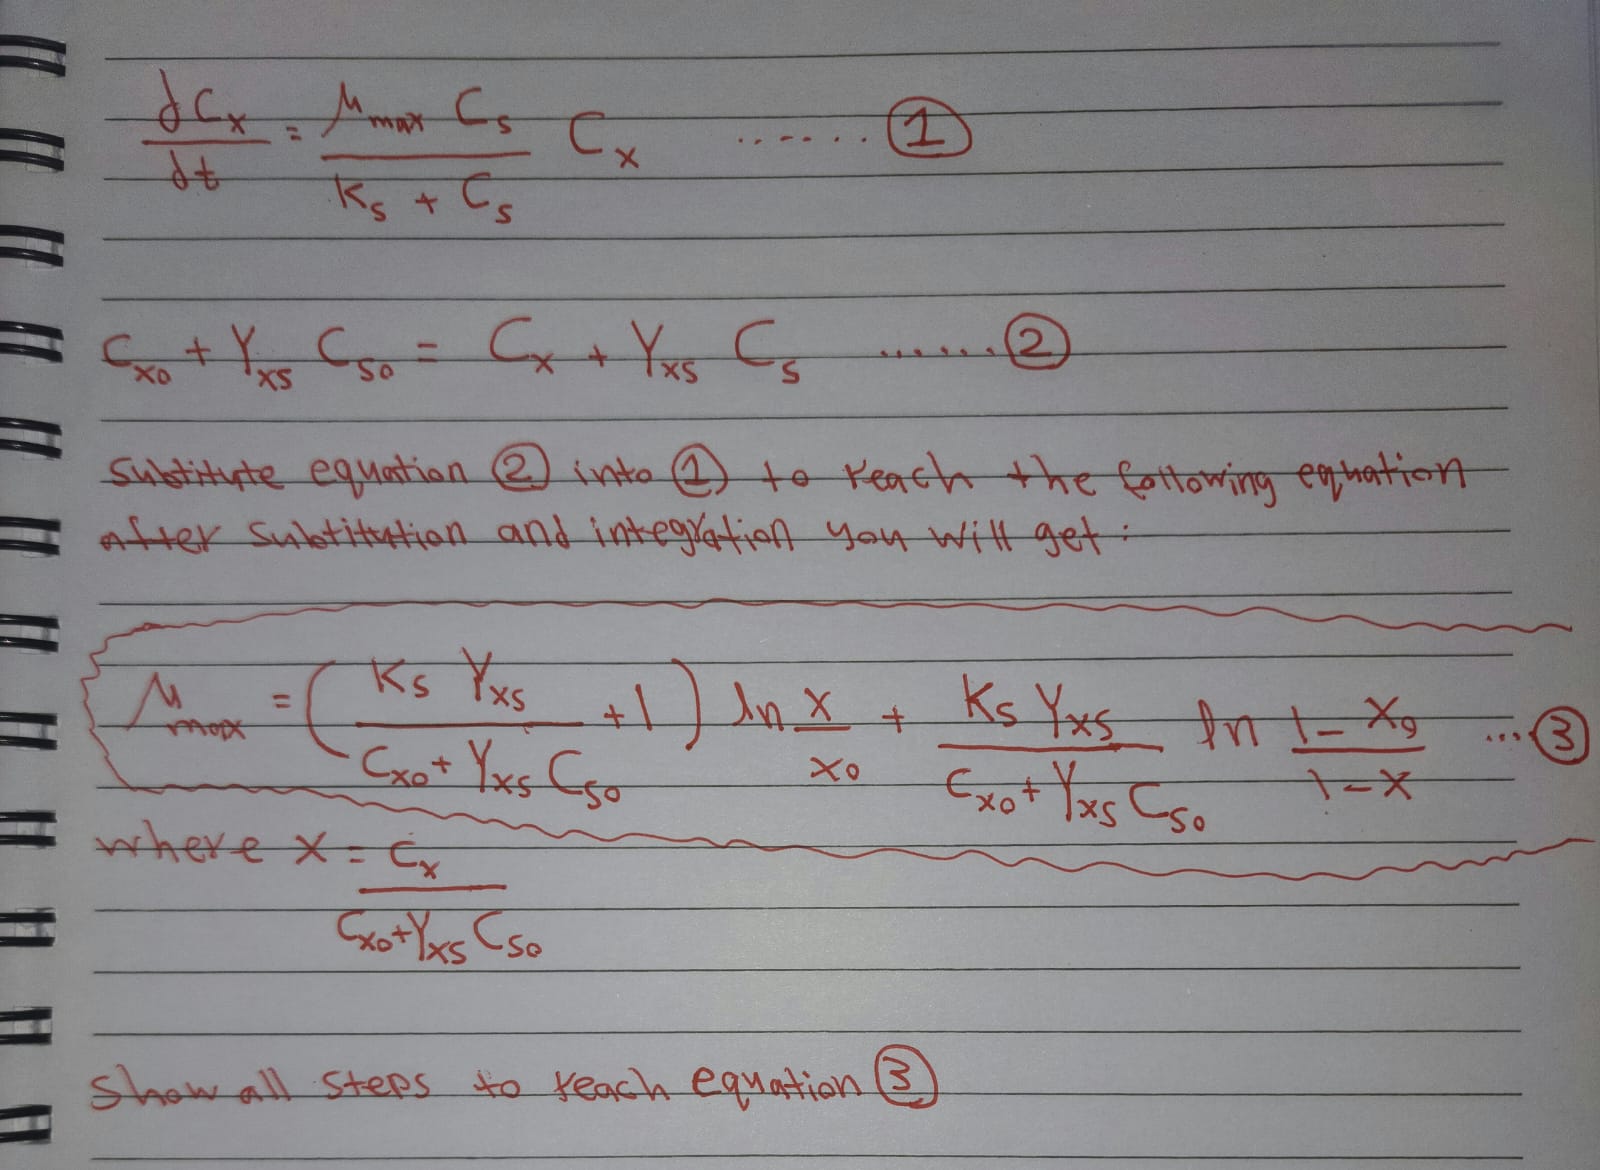 dCx/dt = μmax Cs/(Ks + Cs) Cx ...... ①
Cxo + Yxs Cso = Cx + Yxs Cs ...... ②
Substitute equation ② into ① to reach the following equation
after substitution and integration you will get:
μmax = (Ks Yxs/(Cxo + Yxs Cso) + 1) ln x/xo + Ks Yxs/(Cxo + Yxs Cso) ln (1 - xo)/(1 - x) ... ③
where x = Cx/(Cxo + Yxs Cso)
Show all steps to reach equation ③